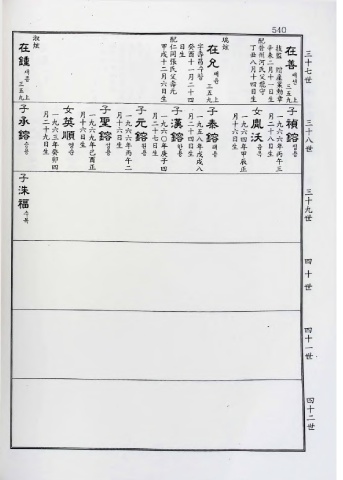 540
三十七世
在善 재선
三五九上
丁丑八月十四日生
在兄 재윤
三五九上
字壽昌
癸酉十一月二十四日生
配仁同張氏父壽九
甲戌十二月六日生
淑烇
在鍾 재종
三五九上
三十八世
子禎鎔 정용
一九六六年丙午三月二十八日生
女胤沃 윤옥
一九六四年甲辰正月十六日生
子泰鎔 태용
一九五八年戊戌八月二十四日生
子漢鎔 한용
一九六〇年庚子四月二十七日生
子元鎔 원용
一九六六年丙午二月十六日生
子聖鎔 성용
一九六九年己酉正月十六日生
女英順 영순
一九六三年癸卯四月二十九日生
子承鎔 승용
三十九世
子洙福 수복
四十世
四十一世
四十二世